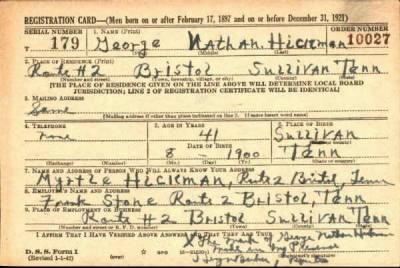 REGISTRATION CARD—(Men born on or after February 17, 1897 and on or before December 31, 1921)
SERIAL NUMBER 1. NAME (Print) ORDER NUMBER
T 179 George Nathan Hickman 10027
2. PLACE OF RESIDENCE (Print)
Route #2 Bristol Sullivan Tenn
(Number and street) (Town, township, village, or city) (County) (State)
[THE PLACE OF RESIDENCE GIVEN ON THE LINE ABOVE WILL DETERMINE LOCAL BOARD
JURISDICTION; LINE 2 OF REGISTRATION CERTIFICATE WILL BE IDENTICAL]
3. MAILING ADDRESS
Same
[Mailing address if other than place indicated on line 2. If same insert word same]
4. TELEPHONE 5. AGE IN YEARS 6. PLACE OF BIRTH
none 41 Sullivan
DATE OF BIRTH (Town or county)
8 - 1900 Tenn
(Exchange) (Number) (Mo.) (Day) (Yr.) (State or country)
7. NAME AND ADDRESS OF PERSON WHO WILL ALWAYS KNOW YOUR ADDRESS
Myrtle Hickman, Tenn
8. EMPLOYER'S NAME AND ADDRESS
Frank Stone Route 2 Bristol, Tenn
9. PLACE OF EMPLOYMENT OR BUSINESS
Route #2 Bristol Sullivan Tenn
(Number and street or R. F. D. number) (Town) (County) (State)
I AFFIRM THAT I HAVE VERIFIED ABOVE ANSWERS AND THAT THEY ARE TRUE.
D. S. S. Form 1
(Revised 1-1-42) (over)